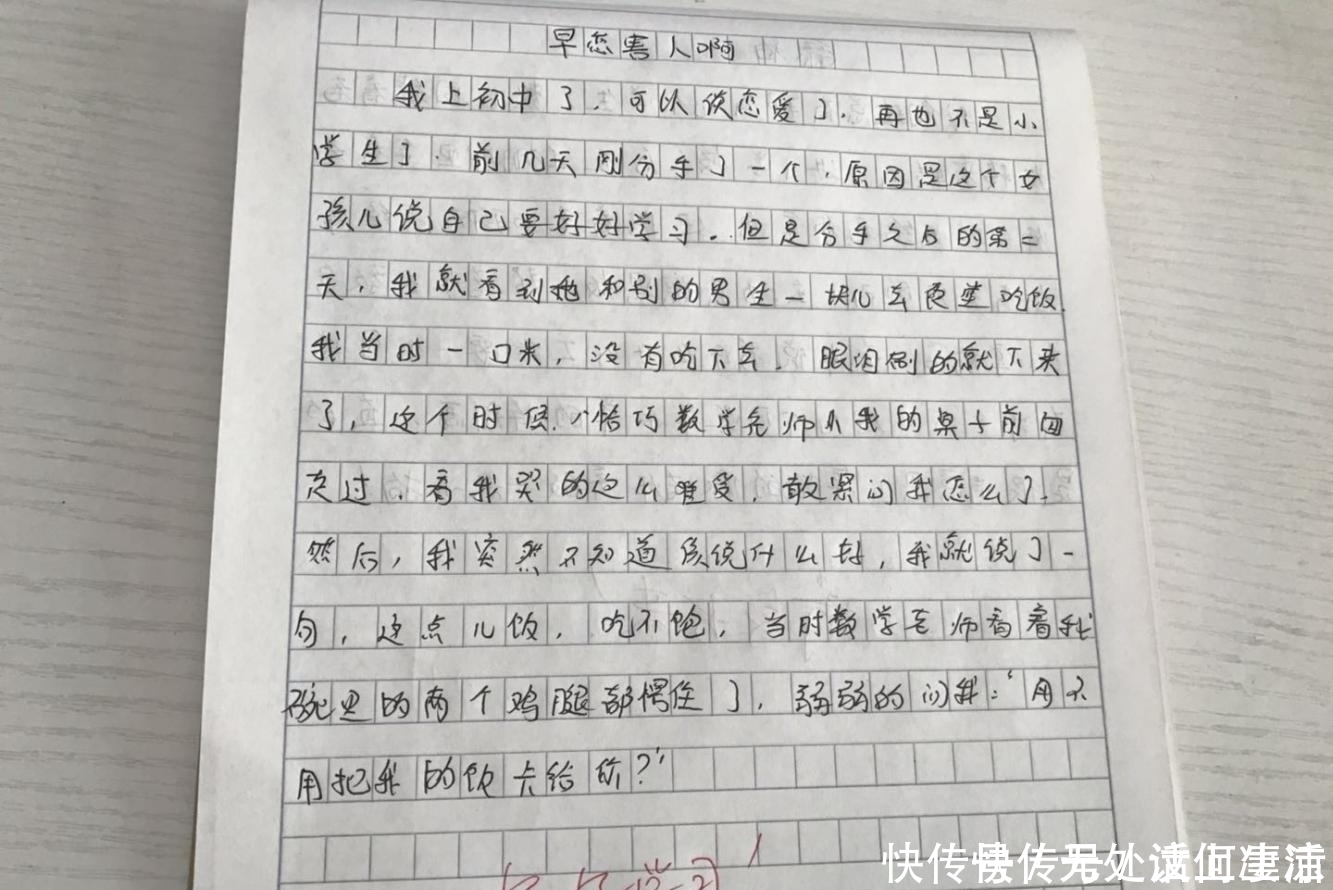 早恋害人啊
我上初中了，可以谈恋爱了，再也不是小
学生了．前几天刚分手了一个，原因是这个女
孩儿说自己要好好学习．但是分手之后的第二
天，我就看到她和别的男生一块儿去食堂吃饭．
我当时一口米，没有吃下去．眼泪刷的就下来
了，这个时候，恰巧数学老师从我的桌子前面
走过，看我哭的这么难受，敢紧问我怎么了．
然后，我突然不知道该说什么好，我就说了一
句，这点儿饭，吃不饱，当时数学老师看着我
碗里的两个鸡腿都愣住了，弱弱的问我："用不
用把我的饭卡给你？"
快传号